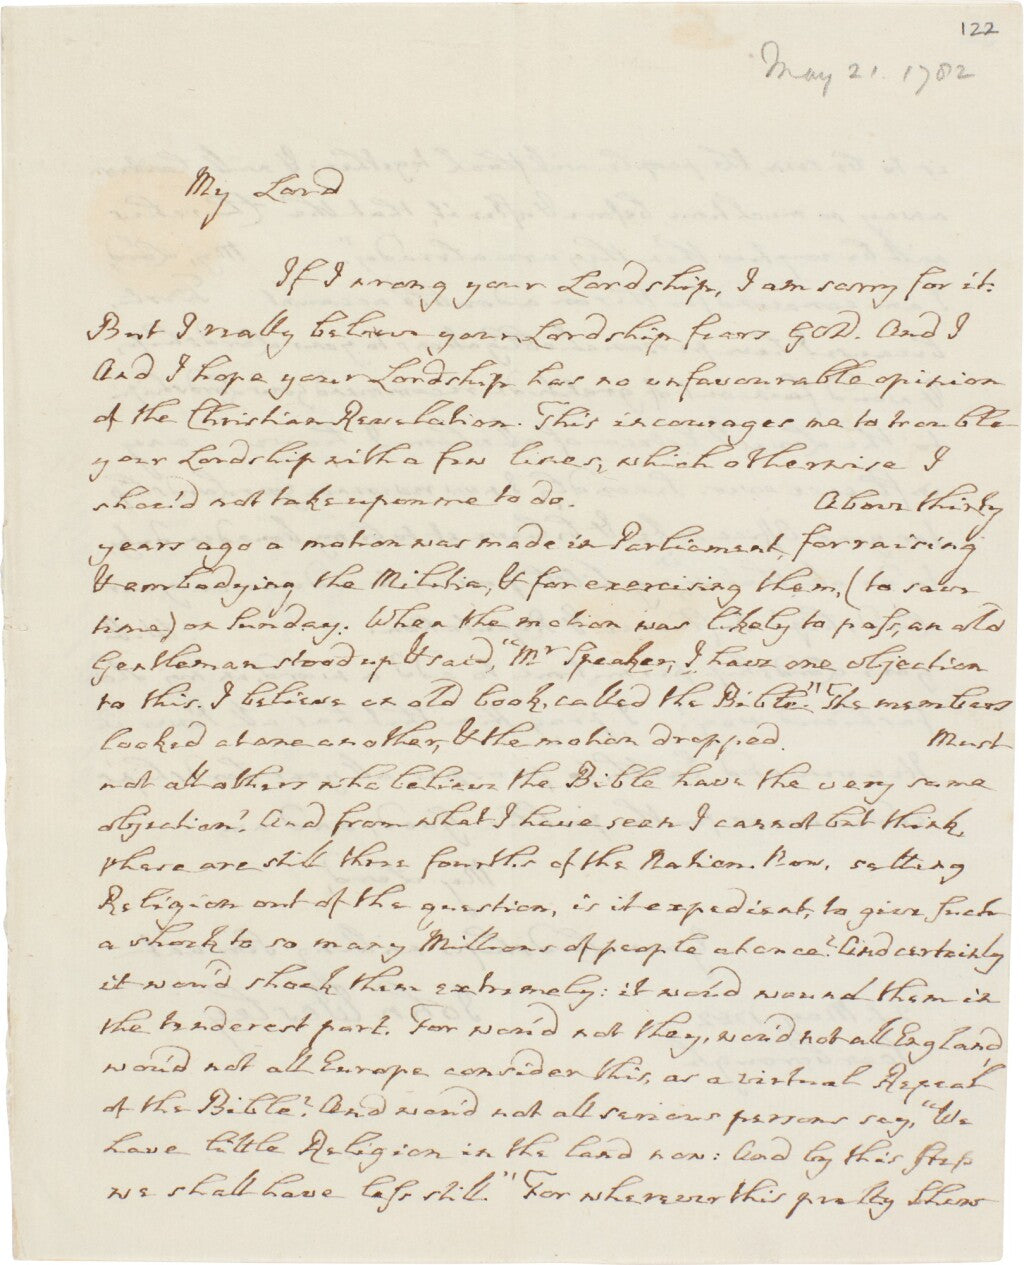 122
May 21. 1782
My Lord
If I wrong your Lordship, I am sorry for it:
But I really believe your Lordship fears GOD. And I
And I hope your Lordship has no unfavourable opinion
of the Christian Revelation. This incourages me to trouble
your Lordship with a few lines, which otherwise I
shou'd not take upon me to do. Above thirty
years ago a motion was made in Parliament, for raising
& embodying the Militia, & for exercising them, (to save
time) on Sunday. When the motion was likely to pass, an old
Gentleman stood up & said, "Mr Speaker, I have one objection
to this. I believe an old book, called the Bible." The members
looked at one another, & the motion dropped. Must
not all others who believe the Bible have the very same
objection? And from what I have seen I cannot but think,
these are still three fourths of the Nation. Now, setting
Religion out of the question, is it expedient, to give such
a shock to so many Millions of people at once? And certainly
it wou'd shock them extremely: it wou'd wound them in
the tenderest part. For wou'd not they, wou'd not all England,
wou'd not all Europe consider this, as a virtual Repeal
of the Bible? And wou'd not all serious persons say, "We
have little Religion in the land now: And by this step
we shall have less still." For wherever this pretty Shew